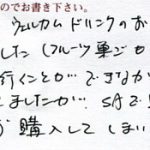 のでお書き下さい。
ウェルカムドリンクのお
した(フルーツ果汁か
行くことができなか
ましたが、SAで
購入してしまい